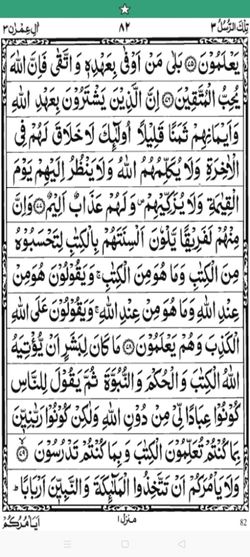 تِلْكَ الرُّسُلُ ٣ ٨٢ اٰلِ عِمْرٰن ٣
يَعْلَمُوْنَ ﴿٧٥﴾ بَلٰى مَنْ اَوْفٰى بِعَهْدِهٖ وَ اتَّقٰى فَاِنَّ اللّٰهَ
يُحِبُّ الْمُتَّقِيْنَ ﴿٧٦﴾ اِنَّ الَّذِيْنَ يَشْتَرُوْنَ بِعَهْدِ اللّٰهِ
وَ اَيْمَانِهِمْ ثَمَنًا قَلِيْلًا اُولٰٓئِكَ لَا خَلَاقَ لَهُمْ فِى
الْاٰخِرَةِ وَ لَا يُكَلِّمُهُمُ اللّٰهُ وَ لَا يَنْظُرُ اِلَيْهِمْ يَوْمَ
الْقِيٰمَةِ وَ لَا يُزَكِّيْهِمْ ۪ وَ لَهُمْ عَذَابٌ اَلِيْمٌ ﴿٧٧﴾ وَ اِنَّ
مِنْهُمْ لَفَرِيْقًا يَّلْوٗنَ اَلْسِنَتَهُمْ بِالْكِتٰبِ لِتَحْسَبُوْهُ
مِنَ الْكِتٰبِ وَ مَا هُوَ مِنَ الْكِتٰبِ ۚ وَ يَقُوْلُوْنَ هُوَ مِنْ
عِنْدِ اللّٰهِ وَ مَا هُوَ مِنْ عِنْدِ اللّٰهِ ۚ وَ يَقُوْلُوْنَ عَلَى اللّٰهِ
الْكَذِبَ وَ هُمْ يَعْلَمُوْنَ ﴿٧٨﴾ مَا كَانَ لِبَشَرٍ اَنْ يُّؤْتِيَهُ
اللّٰهُ الْكِتٰبَ وَ الْحُكْمَ وَ النُّبُوَّةَ ثُمَّ يَقُوْلَ لِلنَّاسِ
كُوْنُوْا عِبَادًا لِّىْ مِنْ دُوْنِ اللّٰهِ وَ لٰكِنْ كُوْنُوْا رَبّٰنِيّٖنَ
بِمَا كُنْتُمْ تُعَلِّمُوْنَ الْكِتٰبَ وَ بِمَا كُنْتُمْ تَدْرُسُوْنَ ﴿٧٩﴾
وَ لَا يَاْمُرَكُمْ اَنْ تَتَّخِذُوا الْمَلٰٓئِكَةَ وَ النَّبِيّٖنَ اَرْبَابًا ؕ
82 منزل ١ اَيَاْمُرُكُمْ